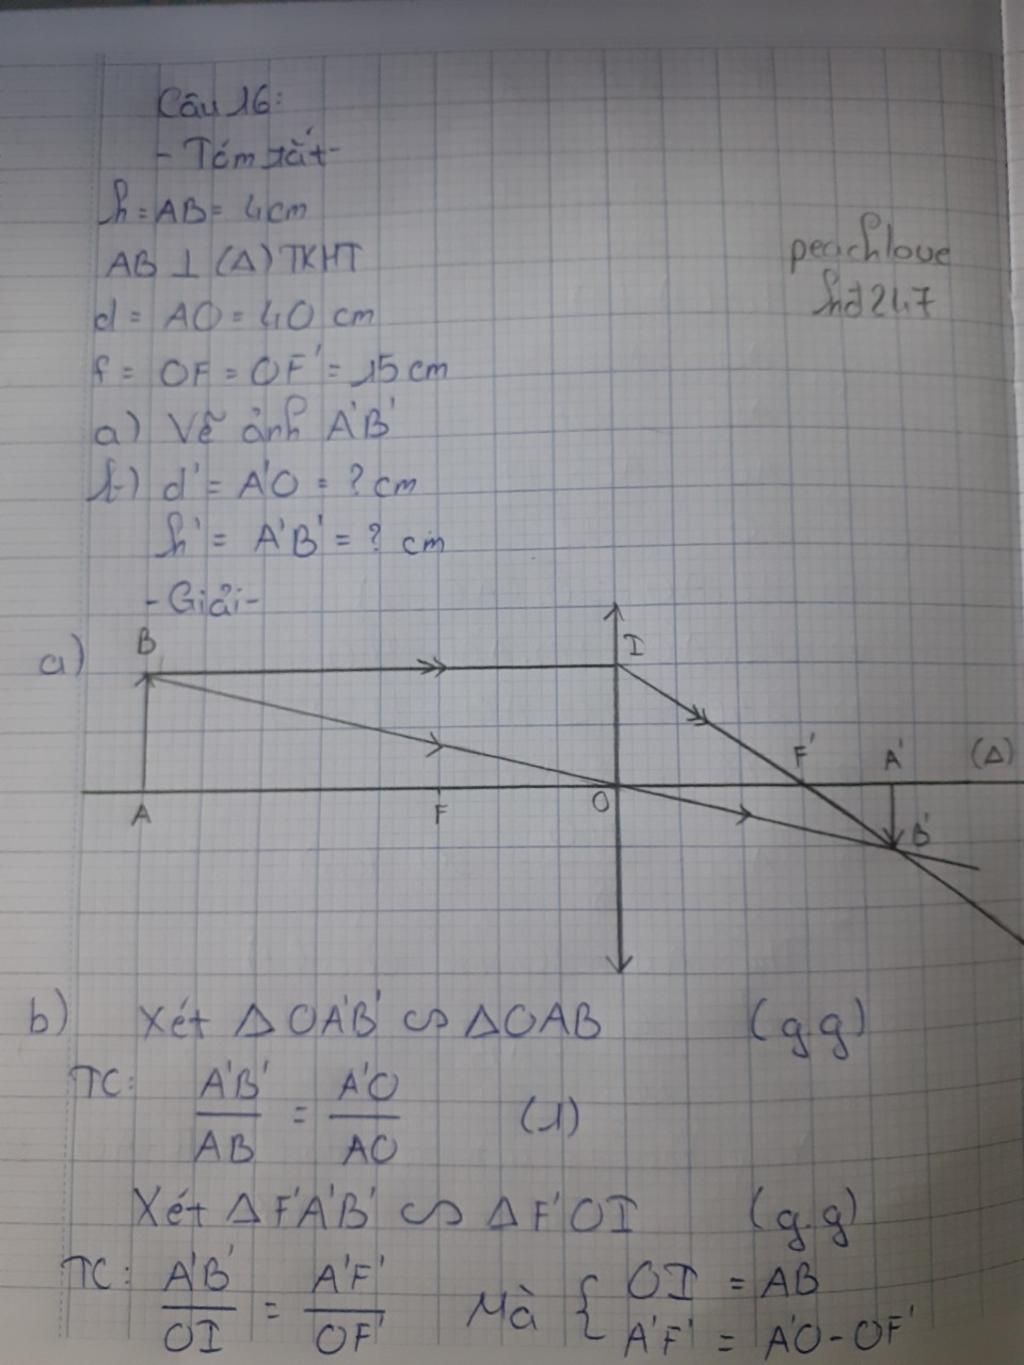 Câu 16:
- Tóm tắt -
h = AB = 4cm
AB ⊥ (Δ) TKHT
peachlove
hđ247
d = AO = 40 cm
f = OF = OF' = 15 cm
a) Vẽ ảnh A'B'
b) d' = A'O = ? cm
h' = A'B' = ? cm
- Giải -
a)
B I
F' A' (Δ)
A F O B'
b) Xét Δ OA'B' ∽ ΔOAB (g.g)
TC: A'B'/AB = A'O/AO (1)
Xét ΔF'A'B' ∽ ΔF'OI (g.g)
TC: A'B'/OI = A'F'/OF' Mà { OI = AB
A'F' = A'O - OF'